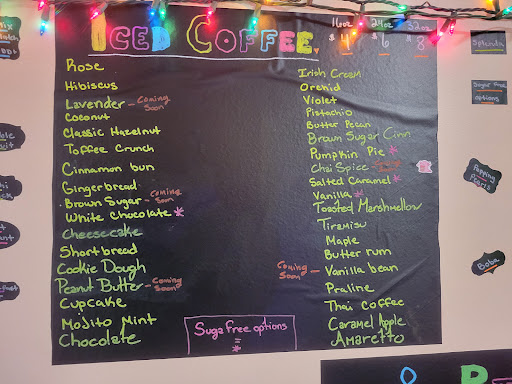 Iced Coffee
16oz 24oz 32oz
$4 $6 $8
Rose
Hibiscus
Lavender - Coming Soon
Coconut
Classic Hazelnut
Toffee Crunch
Cinnamon bun
Gingerbread
Brown Sugar - Coming Soon
White Chocolate *
Cheesecake
Shortbread
Cookie Dough
Peanut Butter - Coming Soon
Cupcake
Mojito Mint
Chocolate
Irish Cream
Orchid
Violet
Pistachio
Butter Pecan
Brown Sugar Cinn
Pumpkin Pie *
Chai Spice
Salted Caramel *
Vanilla *
Toasted Marshmellow
Tiramisu
Maple
Butter rum
Coming Soon - Vanilla bean
Praline
Thai Coffee
Caramel Apple
Amaretto
Suga free options
= *
Splenda
Sugar free
options
Popping
Pearls
Boba